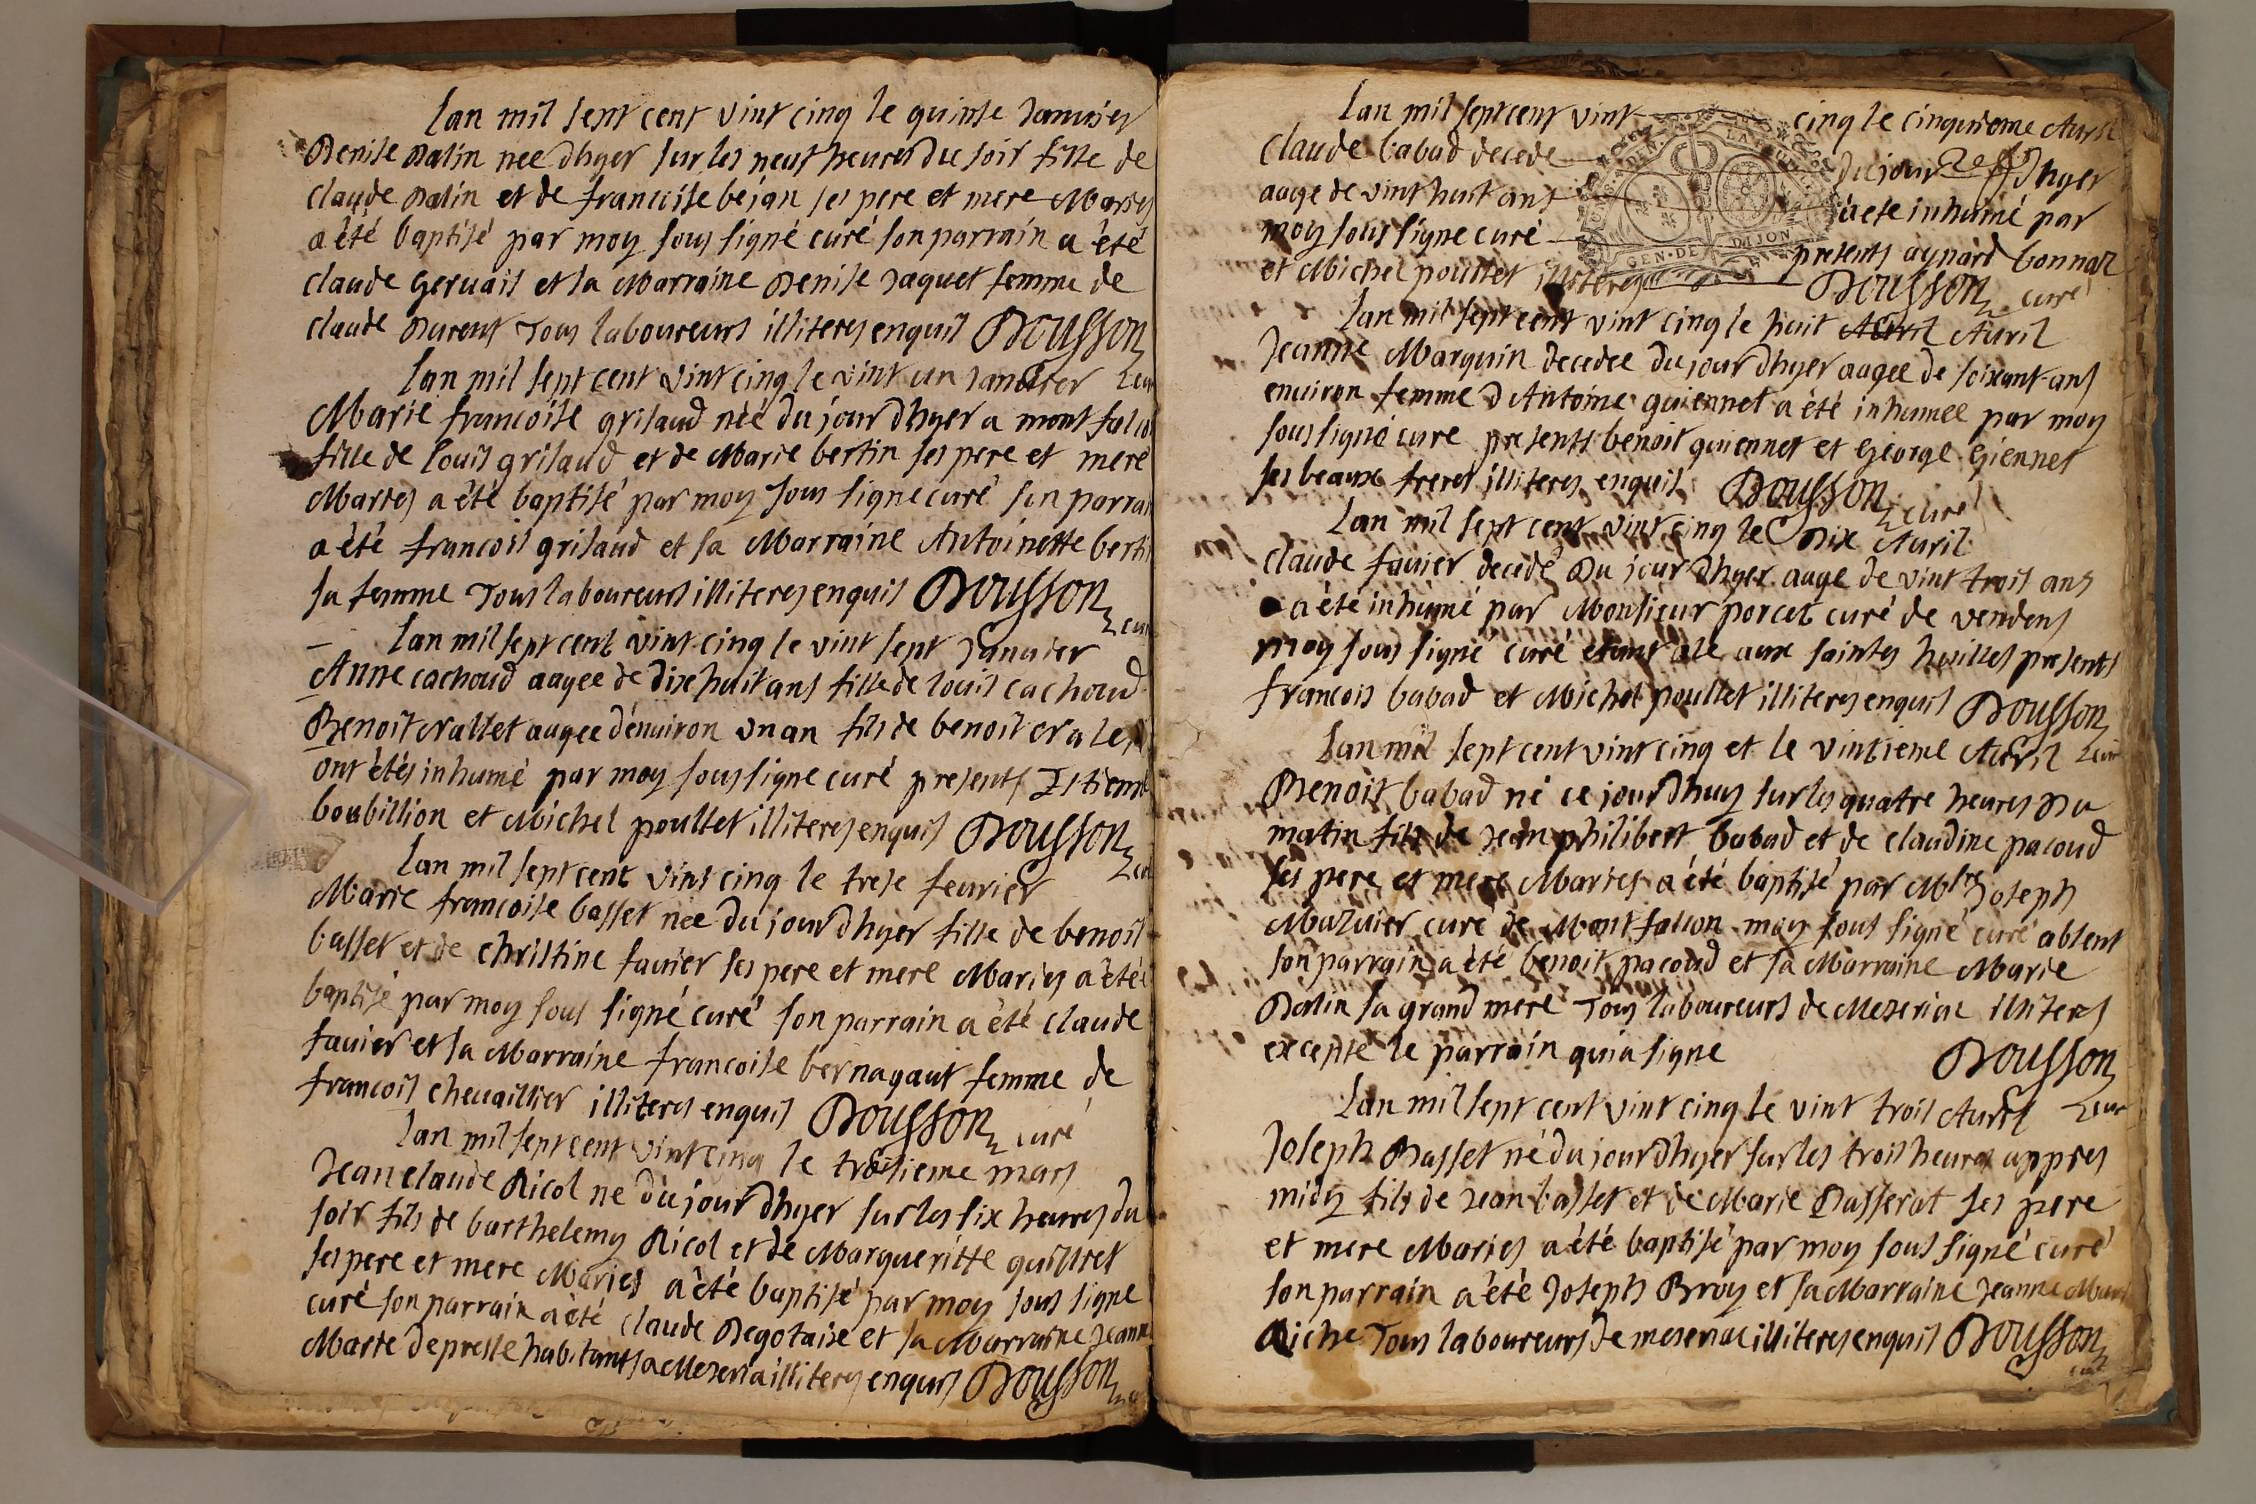 lan mil sept cent vint cinq le quinse Janvier
Denise Dalin nee dhyer sur les neuf heures du soir fille de
claude Dalin et de francoise bejan ses pere et mere Maries
a été baptisé par moy sous signé curé son parrain a été
claude gervais et sa Marraine Denise Jaquet femme de
claude Durent Tous laboureurs illiteres enquis Dousson
lan mil sept cent vint cinq le vint un Janvier cur
Marie francoise grisaud née du jour dhyer a mont falco
fille de louis grisaud et de Marie bertin ses pere et mere
Maries a été baptisé par moy sous signe curé son parrai
a été francois grisaud et sa Marraine Antoinette berti
sa femme Tous laboureurs illiteres enquis Dousson cur
lan mil sept cent vint cinq le vint sept Janvier
Anne cachoud aagee de dix huit ans fille de louis cachoud
Benoit vallet aagee d'environ un an fils de benoit
ont étés inhumé par moy sous signe curé presents Estienne
boubillion et Michel poullet illiteres enquis Dousson
lan mil sept cent vint cinq le trese fevrier
Marie francoise basset née du jour dhyer fille de benoit
basset et de christine favier ses pere et mere Maries a été
baptisé par moy sous signé curé son parrain a été claude
favier et sa Marraine francoise bernagaut femme de
francois chevaillier illiteres enquis Dousson curé
lan mil sept cent vint cinq le troisieme mars
Jean claude Ricol ne du jour dhyer sur les six heures du
soir fils de barthelemy Ricol et de Margueritte quillret
ses pere et mere Maries a été baptisé par moy sous signe
curé son parrain a été claude Degotaise et sa Marraine Jeanne
Marie depresle habitants a Meseria illiteres enquis Dousson
lan mil sept cent vint cinq le cinquieme Avril
claude babad decede du jour dhyer
aage de vint huit ans a ete inhumé par
moy sous signe curé presents aynard bonnaz
et Michel poullet illiteres Dousson curé
GEN·DE DIJON
lan mil sept cent vint cinq le huit Avril Avril
Jeanne Marguin decedee du jour dhyer aagee de soixant ans
environ femme d'Antoine guiennet a été inhumee par moy
sous signé cure presents benoit guiennet et George Giennet
ses beaux freres illiteres enquis Dousson curé
lan mil sept cent vint cinq le Dix Avril
claude favier decedé Du jour dhyer aage de vint trois ans
a été inhumé par Monsieur porcet curé de vendens
moy sous signé curé etant alé aux saintes huilles presents
francois babad et Michel poullet illiteres enquis Dousson
lan mil sept cent vint cinq et le vintieme Avril cur
Benoit babad né ce jour dhuy sur les quatre heures Du
matin fils de Jean philibert babad et de claudine pacoud
ses pere et mere Maries a été baptisé par Mtre Joseph
Mazuier curé de Mont falcon moy sous signé curé absent
son parrain a été benoit pacoud et sa Marraine Marie
Dalin sa grand mere Tous laboureurs de Meseriac illiteres
excepte le parrain qui a signe Dousson
lan mil sept cent vint cinq le vint trois Avril cur
Joseph Basset né du jour dhyer sur les trois heures appres
midy fils de Jean basset et de Marie Basserat ses pere
et mere Maries a été baptisé par moy sous signé curé
son parrain a été Joseph Broy et sa Marraine Jeanne Mari
Riche Tous laboureurs de meseriac illiteres enquis Dousson